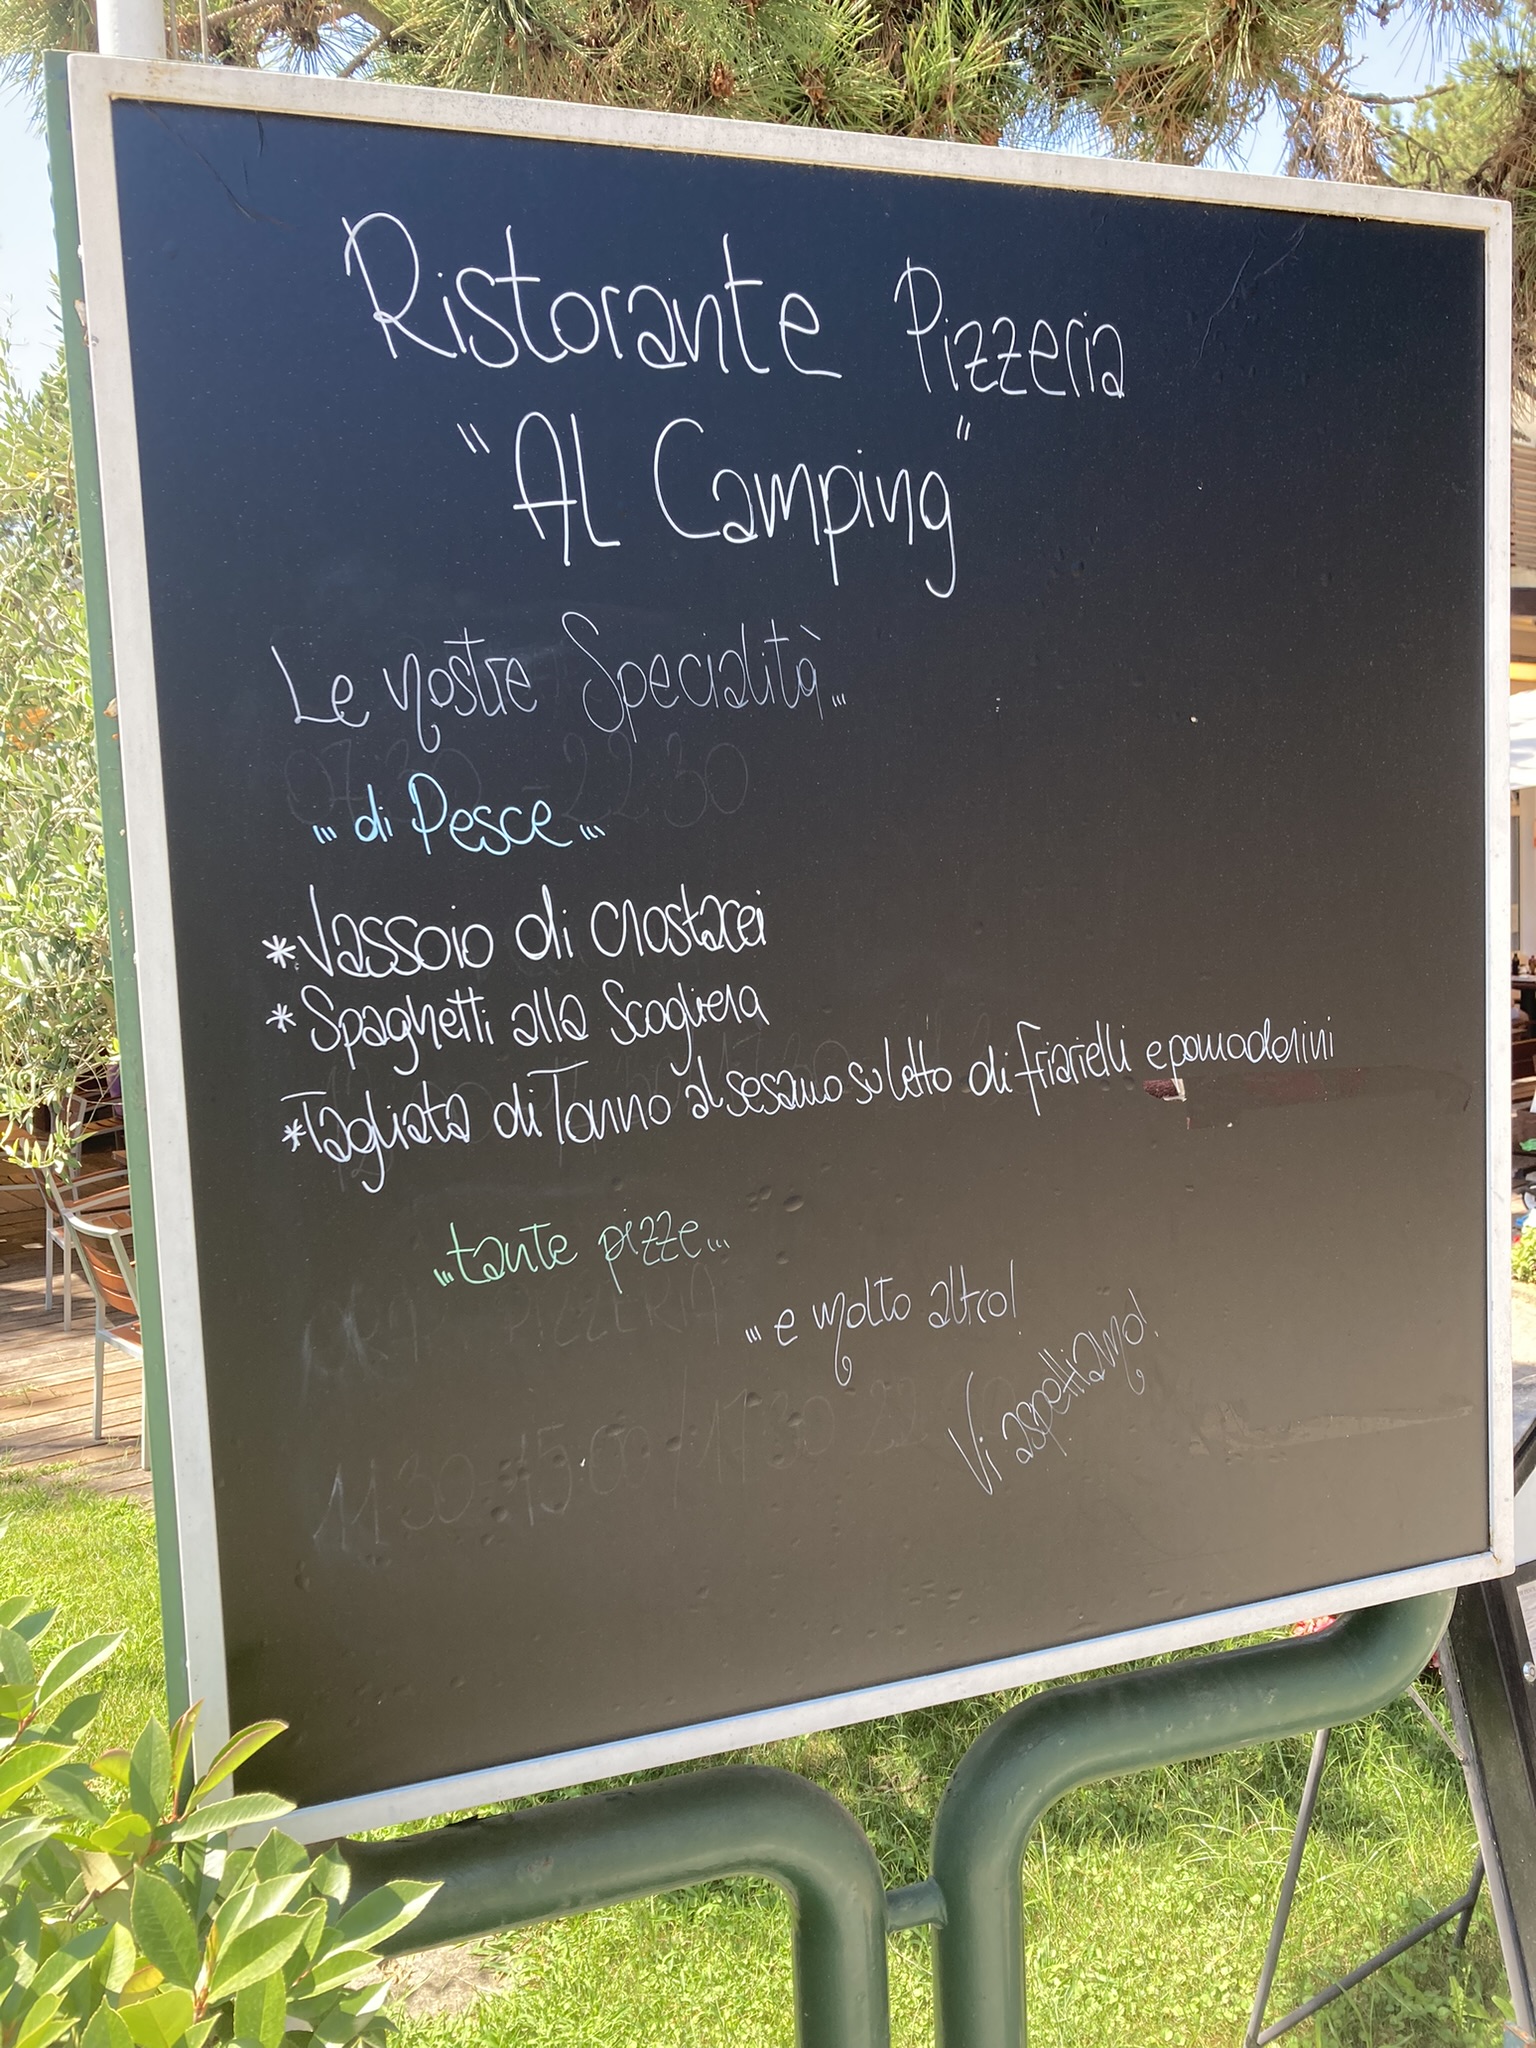 Ristorante Pizzeria
"Al Camping"
Le nostre Specialità...
07:30 - 22:30
...di Pesce...
*Vassoio di crostacei
*Spaghetti alla Scogliera
*Tagliata di Tonno al sesamo su letto di friarielli e pomodorini
...tante pizze...
PIZZERIA
...e molto altro!
Vi aspettiamo!
11:30-15:00/17:30-22